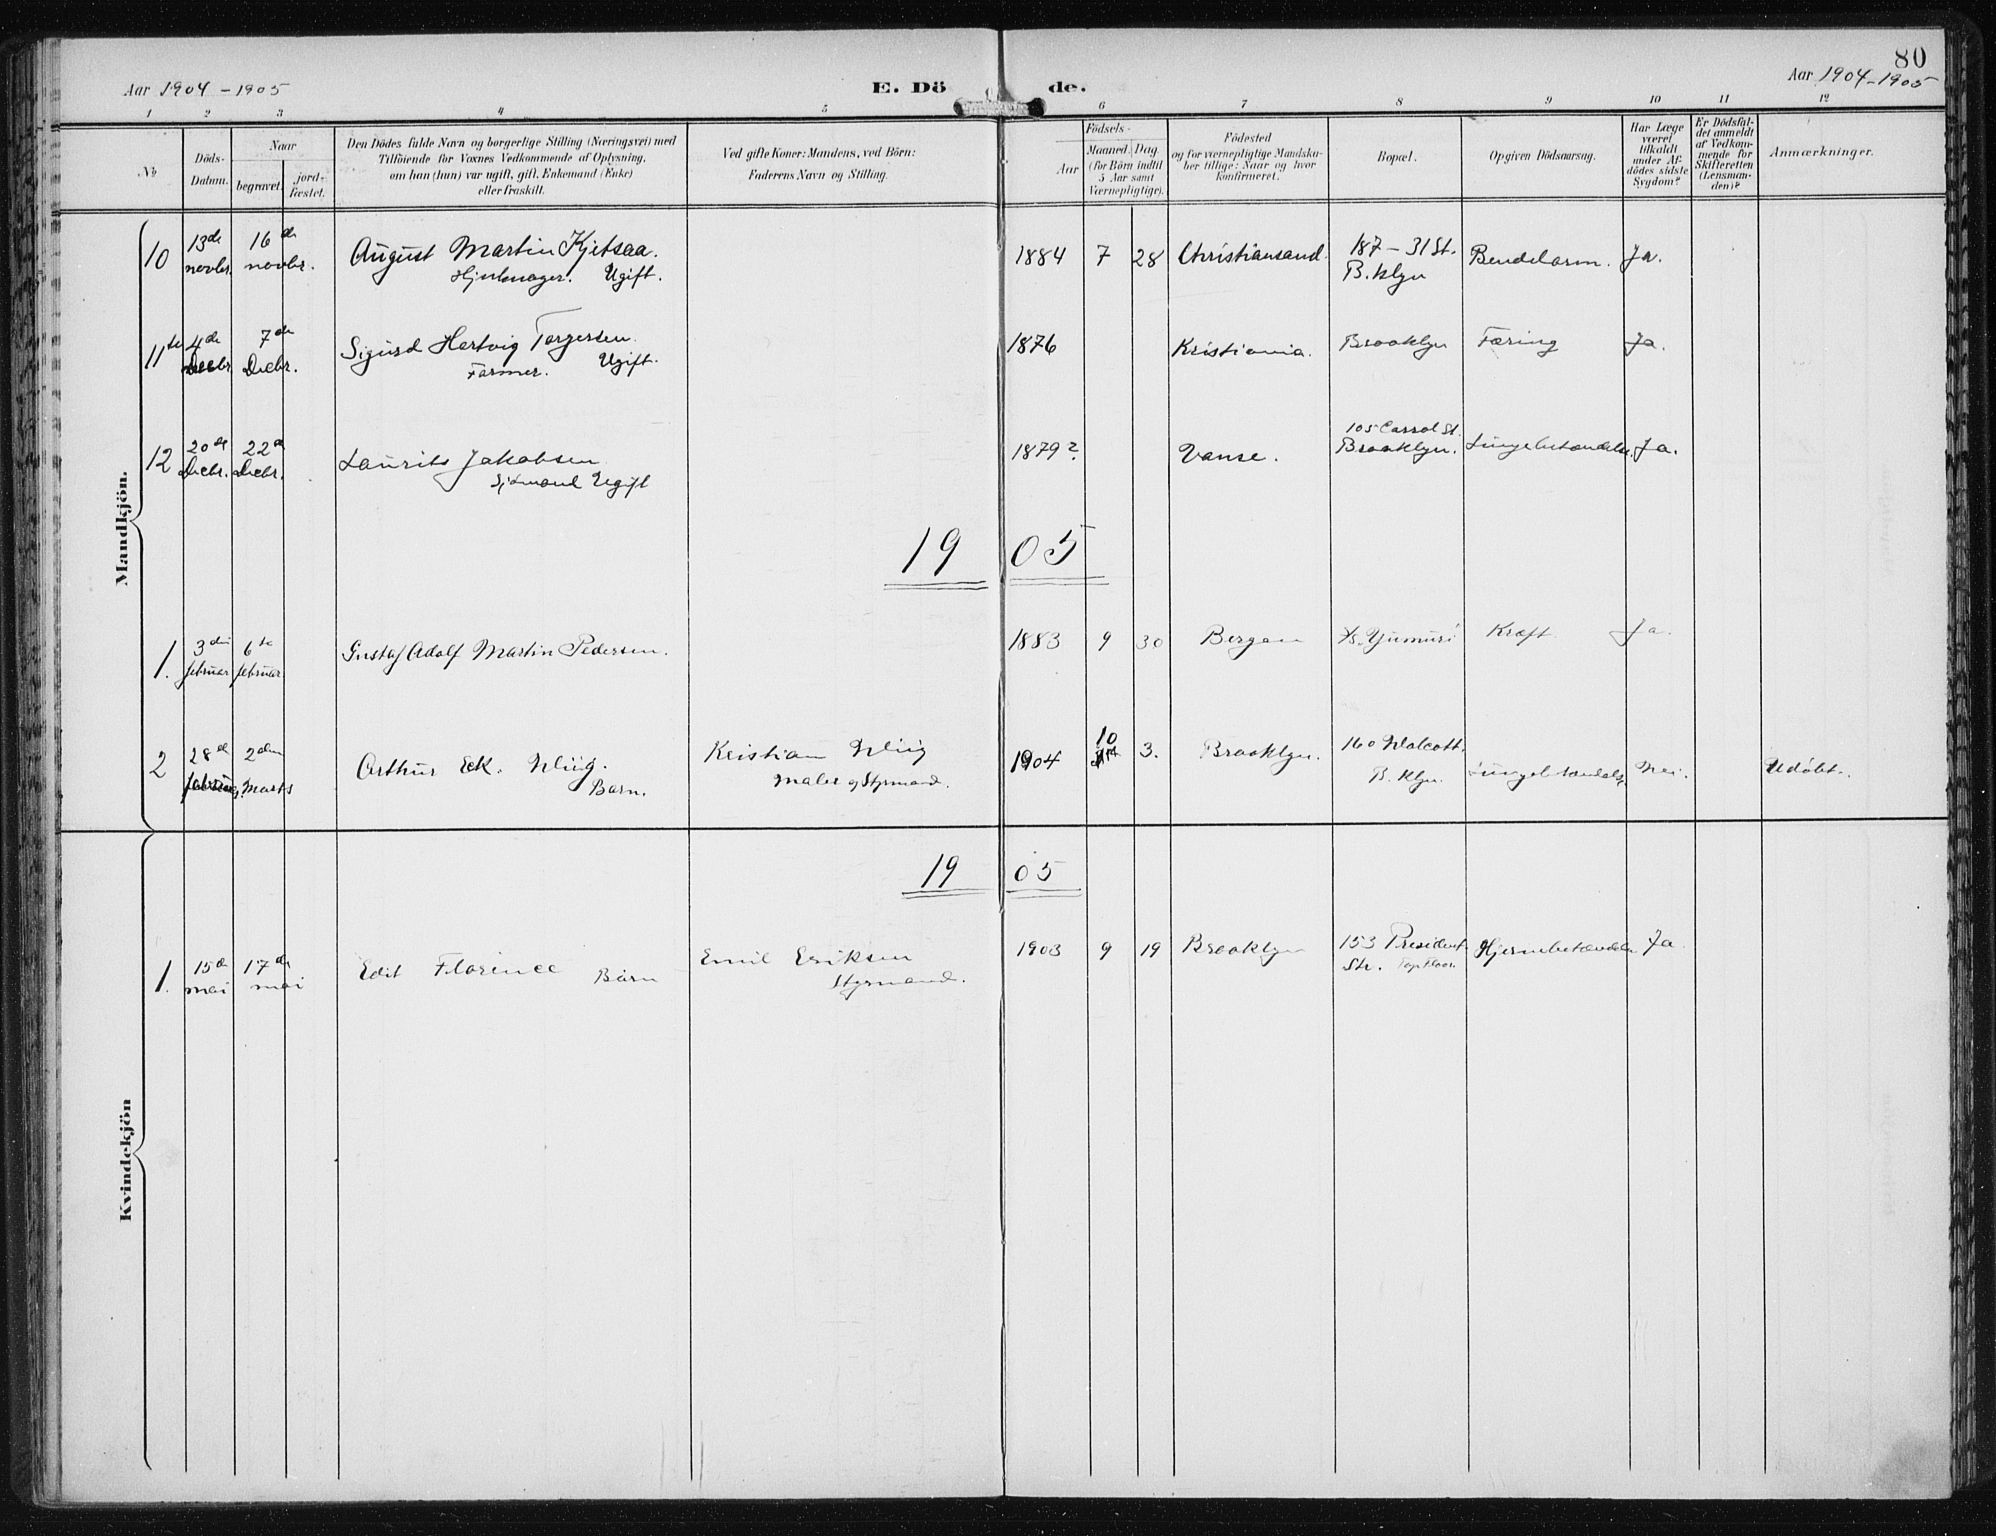 80
Aar 1904 - 1905
E. Döde.
Aar 1904-1905
1 2 3 4 5 6 7 8 9 10 11 12
No
Döds-
Datum.
Naar
begravet.
jord-
fæstet.
Den Dödes fulde Navn og borgerlige Stilling (Næringsvei) med
Tilföiende for Voxnes Vedkommende af Oplysning,
om han (hun) var ugift, gift, Enkemand (Enke)
eller fraskilt.
Ved gifte Koner: Mandens, ved Börn:
Faderens Navn og Stilling.
Födsels-
Aar
Maaned. Dag.
(for Börn indtil
5 Aar samt
Værnepligtige).
Födested
og for værnepligtige Mandska-
ber tillige: Naar og hvor
konfirmeret.
Bopæl.
Opgiven Dödsaarsag.
Har Læge
været
tilkaldt
under Af-
dödes sidste
Sygdom?
Er Dödsfal-
det anmeldt
af Vedkom-
mende for
Skifteretten
(Lensman-
den)?
Anmærkninger.
Mandkjön.
10 13de novbr. 16de novbr. August Martin Kjetsaa. 1884 7 28 Christiansand. 187 - 31 St. Ja.
Ugift. B.klyn
11te 4de Decbr. 7de Decbr. Sigurd Hartvig Torgersen. 1876 Kristiania. Brooklyn Tæring Ja.
Farmer. Ugift.
12 20de Decbr. 22de Decbr. Laurits Jakobsen 1879? Vanse. 105 Carrol St. Brooklyn. Lungebetændelse. Ja.
Sjømand Ugift
1905
1. 3die februar 6te februar Gustaf Adolf Martin Pedersen. 1883 9 30 Bergen S/S. Yumuri Kræft Ja.
2 28de februar 2den Marts Arthur Eck. Wiig. Kristian Wiig 1904 10 3. Brooklyn. 160 Wolcott. Lungebetændelse Nei. Udöbt.
Barn. Maler og Styrmand. B. klyn.
Kvindekjön
1905
1. 15de mai 17de mai Edit Florence Barn Emil Eriksen 1903 9 19 Brooklyn 153 President Hjernebetændelse Ja
Styrmand. Str. Top Floor.